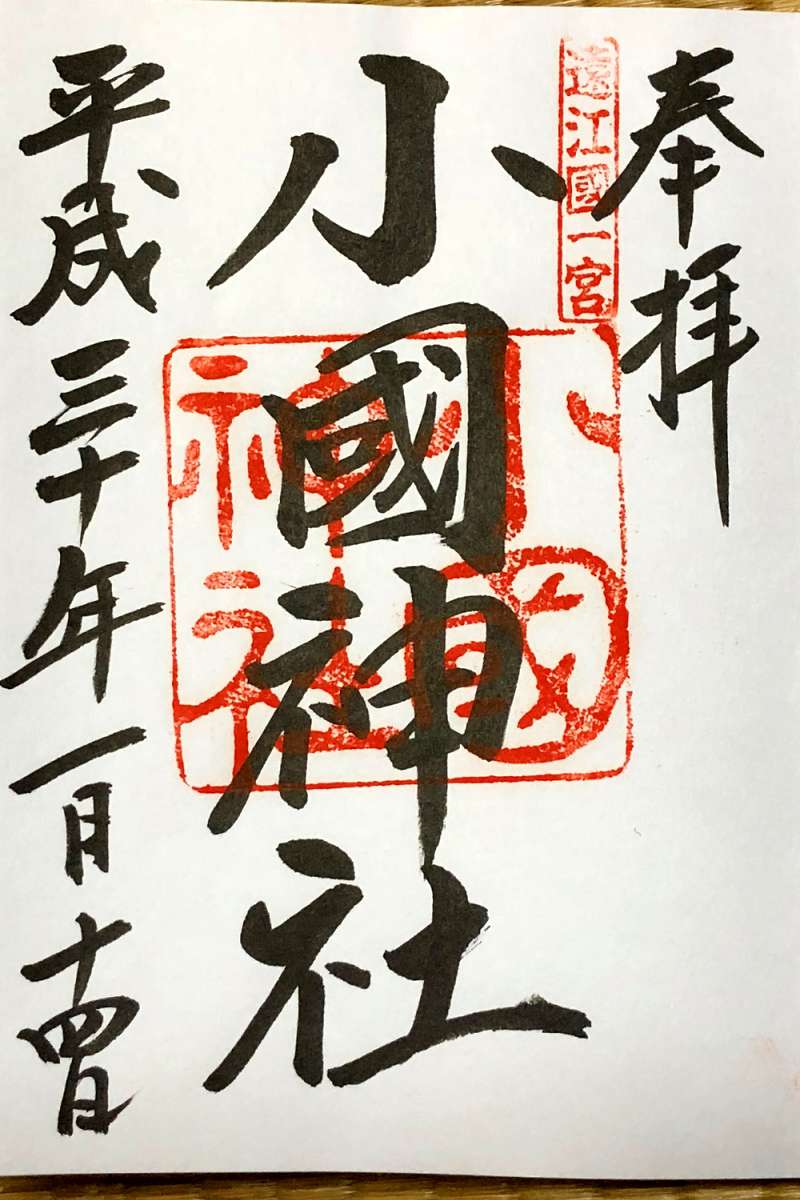 奉拝
遠江國一宮
小國神社
小國神社
平成三十年一月十四日